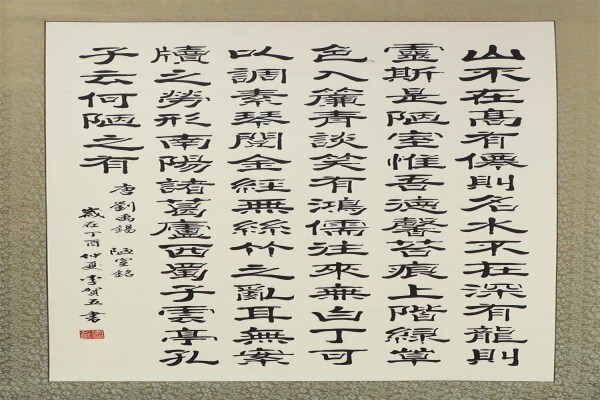 山不在高有僊則名水不在深有龍則
靈斯是陋室惟吾德馨苔痕上階綠草
色入簾青談笑有鴻儒往來無白丁可
以調素琴閱金經無絲竹之亂耳無案
牘之勞形南陽諸葛廬西蜀子雲亭孔
子云何陋之有
唐劉禹錫 陋室銘
歲在丁酉仲夏李賀五書